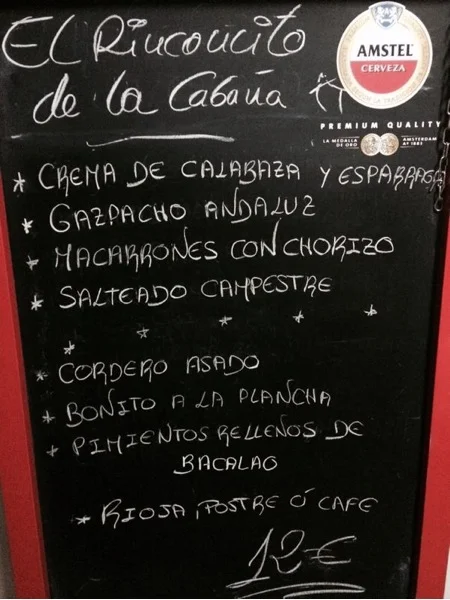 EL Rinconcito
de la Cabaña
AMSTEL
CERVEZA
PREMIUM QUALITY
LA MEDALLA
DE ORO
AMSTERDAM
Aº 1883
* CREMA DE CALABAZA Y ESPARRAGO
* GAZPACHO ANDALUZ
* MACARRONES CON CHORIZO
* SALTEADO CAMPESTRE
* * * * *
* CORDERO ASADO
* BONITO A LA PLANCHA
* PIMIENTOS RELLEÑOS DE
BACALAO
* RIOJA, POSTRE Ó CAFE
12€